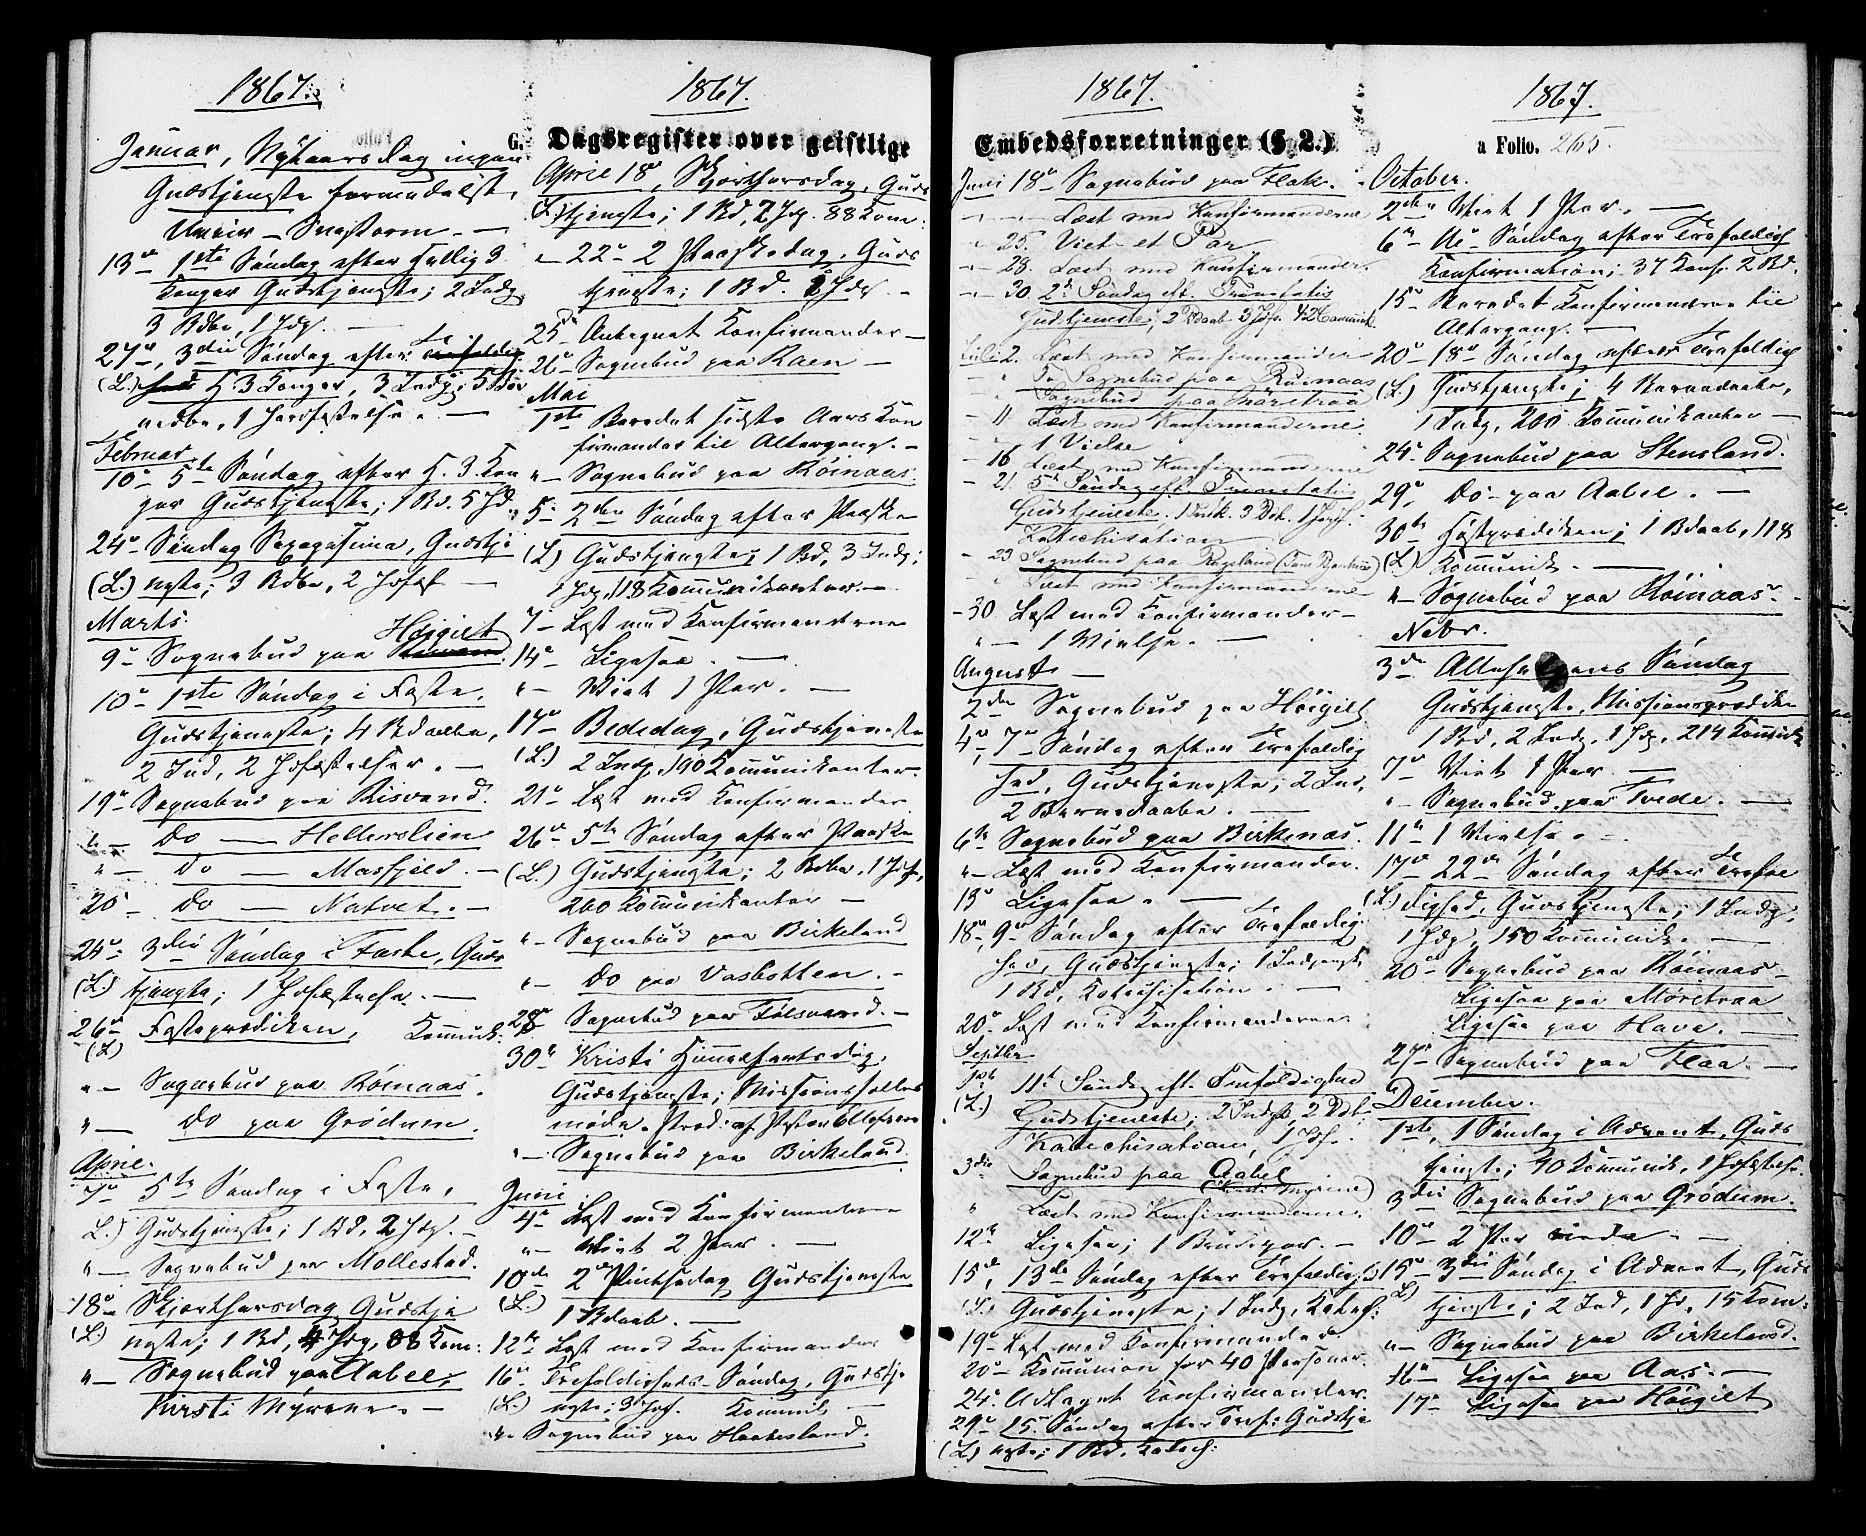 1867.
Januar, Nytaarsdag ingen
Gudstjeneste formedelst
Uveir - Snestorm. -
13de 1ste Søndag efter hellig 3
Konger Gudstjeneste; 2 Indg
3 Bdbe, 1 Jdp. -
27de, 3die Søndag efter
(L.) H 3 Konger, 3 Indg, 5 Bar
nedbe, 1 Jordfæstelse. -
Februar
10de 5te Søndag efter H. 3. Kon
ger Gudstjeneste; 1 Bd. 5 Jd.
24de Søndag Sexagesima, Gudstje
(L.) neste; 3 Bdbe, 2 Jofæst -
Marts.
9de Sognebud paa Høigilt
10de 1ste Søndag i Faste,
Gudstjeneste; 4 Bdaabe,
2 Ind, 2 Jofæstelser. -
19de Sognebud paa Risvand.
" - Do - Hellerslien
" - Do - Masfjeld. -
20 - Do - Natvet. -
24de 3die Søndag i Faste, Guds
(L.) tjeneste; 1 Jofæstelse. -
26de Fasteprædiken, Kommunik.
(L)
" - Sognebud paa Røinaas.
" - Do paa Grødum.
April.
7de 5te Søndag i Faste,
L.) Gudstjeneste; 1 Bd, 2 Jdp. -
" - Sognebud paa Mollestad.
18de Skjærthorsdag Gudstje
(L) neste; 1 Bd, 4 Jdp, 88 Kom:
" - Sognebud paa Aabel,
Kirsti Myrene. -
1867.
G. Dagsregister over geistlige
April 18de, Skjærthorsdag, Guds
(L) tjeneste; 1 Bd, 2 Jdp. 88 Kom:
" - 22de 2 Paaskedag, Guds
tjeneste; 1 Bd. 2 Jdp -
25de Antegnet Konfirmander -
26de Sognebud paa Raen -
Mai
1ste Beredet sidste Aars Kon
firmander til Altergang. -
" - Sognebud paa Røinaas.
5te 2den Søndag efter Paaske
(L) Gudstjeneste; 1 Bd, 3 Indg;
1 Jdp, 118 Kommunikanter. -
7 - Læst med Konfirmanterne
14de Ligesaa. -
" - Viet 1 Par. -
17de Bededag, Gudstjeneste
(L.) 2 Indg, 190 Kommunikanter.
21de Læst med Konfirmander
26de 5te Søndag efter Paaske
(L.) Gudstjeneste; 2 Bdbe, 1 Jdf,
260 Kommunikanter -
" - Sognebud paa Birkeland
" - Do paa Vasbotten. -
28de Sognebud paa Tilsvand. -
30te Kristi Himmelfartsdag,
Gudstjeneste; Missionsfælles
møde. Præd: af Pastor Ellefsen
" - Sognebud paa Birkeland.
Juni
4de Læst med Konfirmanterne
" - Viet 2 Par. -
10de 2den Pintsedag Gudstjeneste
(L.) 1 Bdaab. -
12te Læst med Konfirmander
16de Trefoldigheds-Søndag, Gudstje
(L.) neste; 3 Jof. Kommunik -
" - Sognebud paa Haabesland.
1867.
Embedsforretninger (§ 2.)
Juni 18de Sognebud paa Flak.
" - Læst med Konfirmanderne
" - 25. Viet et Par
" - 28. Læst med Konfirmander.
" - 30. 2de Søndag eft. Trinitatis
Gudstjeneste; 2 Bdaab 3 Jdf. 42 Communik.
Juli 2. Læst med Konfirmander
" 5. Sognebud paa Røinaas
" Sognebud paa Møretraa
- 11 Læst med Konfirmanderne.
" 1 Vielse
- 16 Læst med Konfirmanderne
- 21. 5te Søndag eft. Trinitatis
Gudstjeneste. 1 Indk. 3 Dåb. 1 Jordf.
Katechisation
- 23 Sognebud paa Rageland
" Læst med Konfirmanderne
- 30. Læst med Konfirmander -
" - 1 Vielse. -
August -
2den Sognebud paa Høigilt
4de, 7de Søndag efter Trefoldig
hed, Gudstjeneste; 2 Ind,
2 Barnedaabe. -
6te Sognebud paa Birkenas.
" - Læst med Konfirmander.
13de Ligesaa. -
18de, 9de Søndag efter Trefoldig
hed, Gudstjeneste; 1 Indgangsk
1 Bd, Katechisation. -
20de Læst med Konfirmanderne
Septbr
1ste 11te Søndag eft. Trefoldighed
(L.) Gudstjeneste; 2 Indgk, 2 Ddb.
Katechisation, 1 Jdf.
3die Sognebud paa Aabel
(Kirsti Myrene)
" Læst med Konfirmanderne.
12te Ligesaa; 1 Brudepar. -
15de, 13de Søndag efter Trefoldigh:
(L.) Gudstjeneste; 1 Indg, Katech:
19de Læst med Konfirmander
20de Kommunion for 40 Personer.
24de Adtaget Konfirmander.
29de 15de Søndag efter Tref: Gudstje
(L) neste; 1 Bd, Katech:
1867.
a Folio. 265.
October.
2den Viet 1 Par. -
6te 16de Søndag efter Trefoldigh
Konfirmation; 37 Konf. 2 Bd.
15de Beredet Konfirmanderne til
Altergang. -
20de 18de Søndag efter Trefoldigh
(L) Gudstjeneste; 4 Barnedaabe,
1 Indg, 200 Kommunikanter -
24de Sognebud paa Stensland.
29de Do - paa Aabel. -
30te Høstprædiken; 1 Bdaab, 118
(L) Kommunik. -
" - Sognebud paa Røinaas. -
Nvbr.
3die Allehelgens Søndag
Gudstjeneste, Missionsprædiken
1 Bd, 2 Indg, 1 Jdp, 214 Kommunik
7de Viet 1 Par -
" Sognebud paa Tvede. -
11te 1 Vielse. -
17de 22de Søndag efter Trefol
(L) dighed, Gudstjeneste; 1 Indg,
1 Jdp, 150 Kommunik. -
20de Sognebud paa Røinaas -
Ligesaa paa Møretraa
Ligesaa paa Have. -
27de Sognebud paa Flaa. -
December.
1ste, 1 Søndag i Advent, Guds
tjeneste; 40 Kommunik, 1 Jofæstelse.
3die Sognebud paa Grødum.
10de 2 Par viede. -
15de 3die Søndag i Advent, Guds
(L) tjeneste; 2 Ind, 1 Jd, 15 Kom:
" - Sognebud paa Birkeland.
16de Ligesaa paa Aas. -
17de Ligesaa paa Høigilt